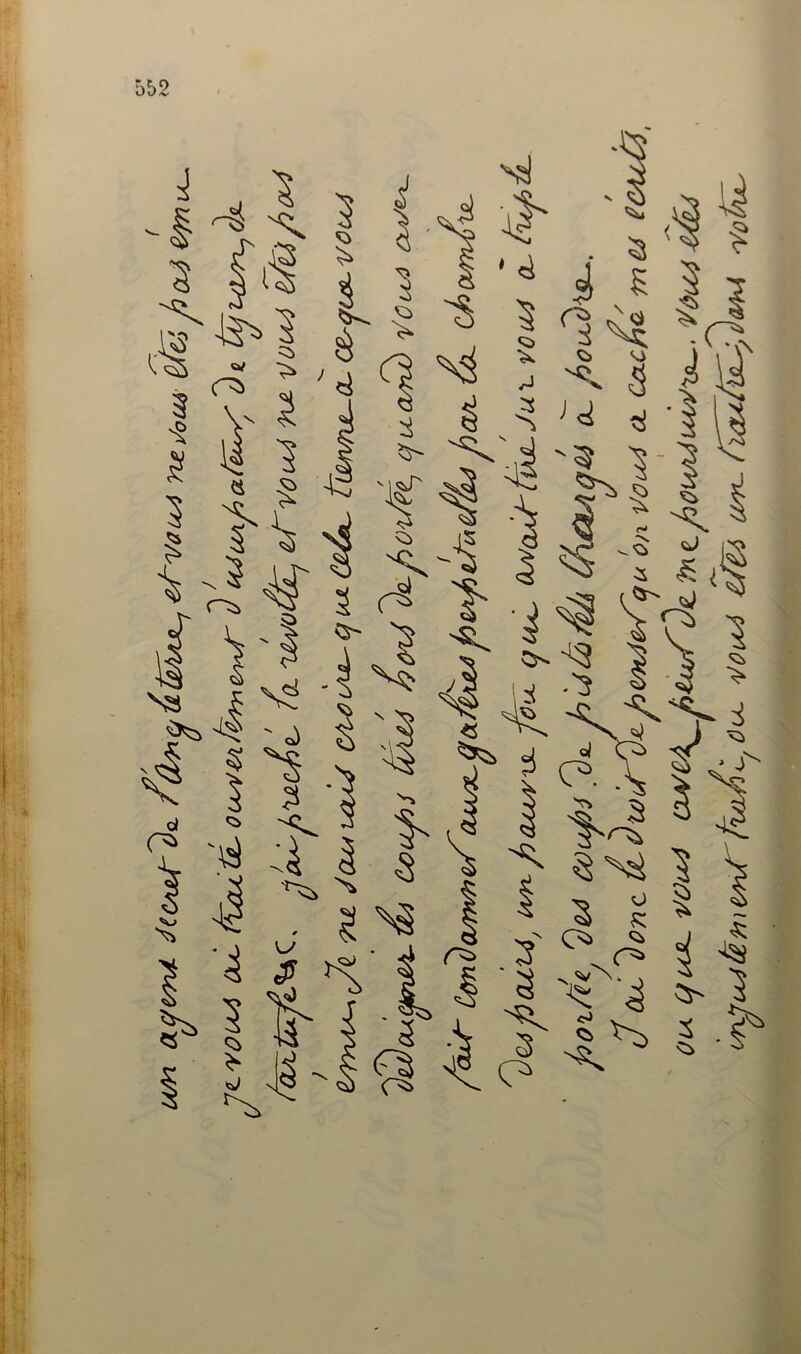 552
un agent secret de l'angleterre, et vous ne vous êtes pas ému
je vous ai traité ouvertement d'usurpateur, de tyran, de
tartufe &c. j'ai preché la révolte, et vous ne vous êtes pas
ému. Je ne saurais croire que cela tienne à ce que vous
dedaignez les coups tirés hors de portée, quand vous avez
fait condamner aux galères perpétuelles par la chambre
des pairs, un pauvre fou qui avait tiré sur vous à triple
portée, des coups de pistolets chargés à poudre.
J'ai donc le droit de penser qu'on vous a caché mes écrits,
ou que vous avez peur de me poursuivre. Vous êtes
injustement trahi, ou vous êtes un traitre; dans votre